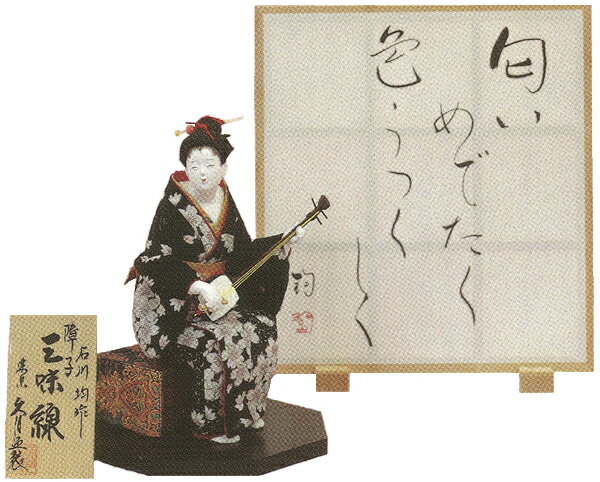 匂い
めでたく
色うつく
しく
均
石川均作
障子
三味線
東京久月監製